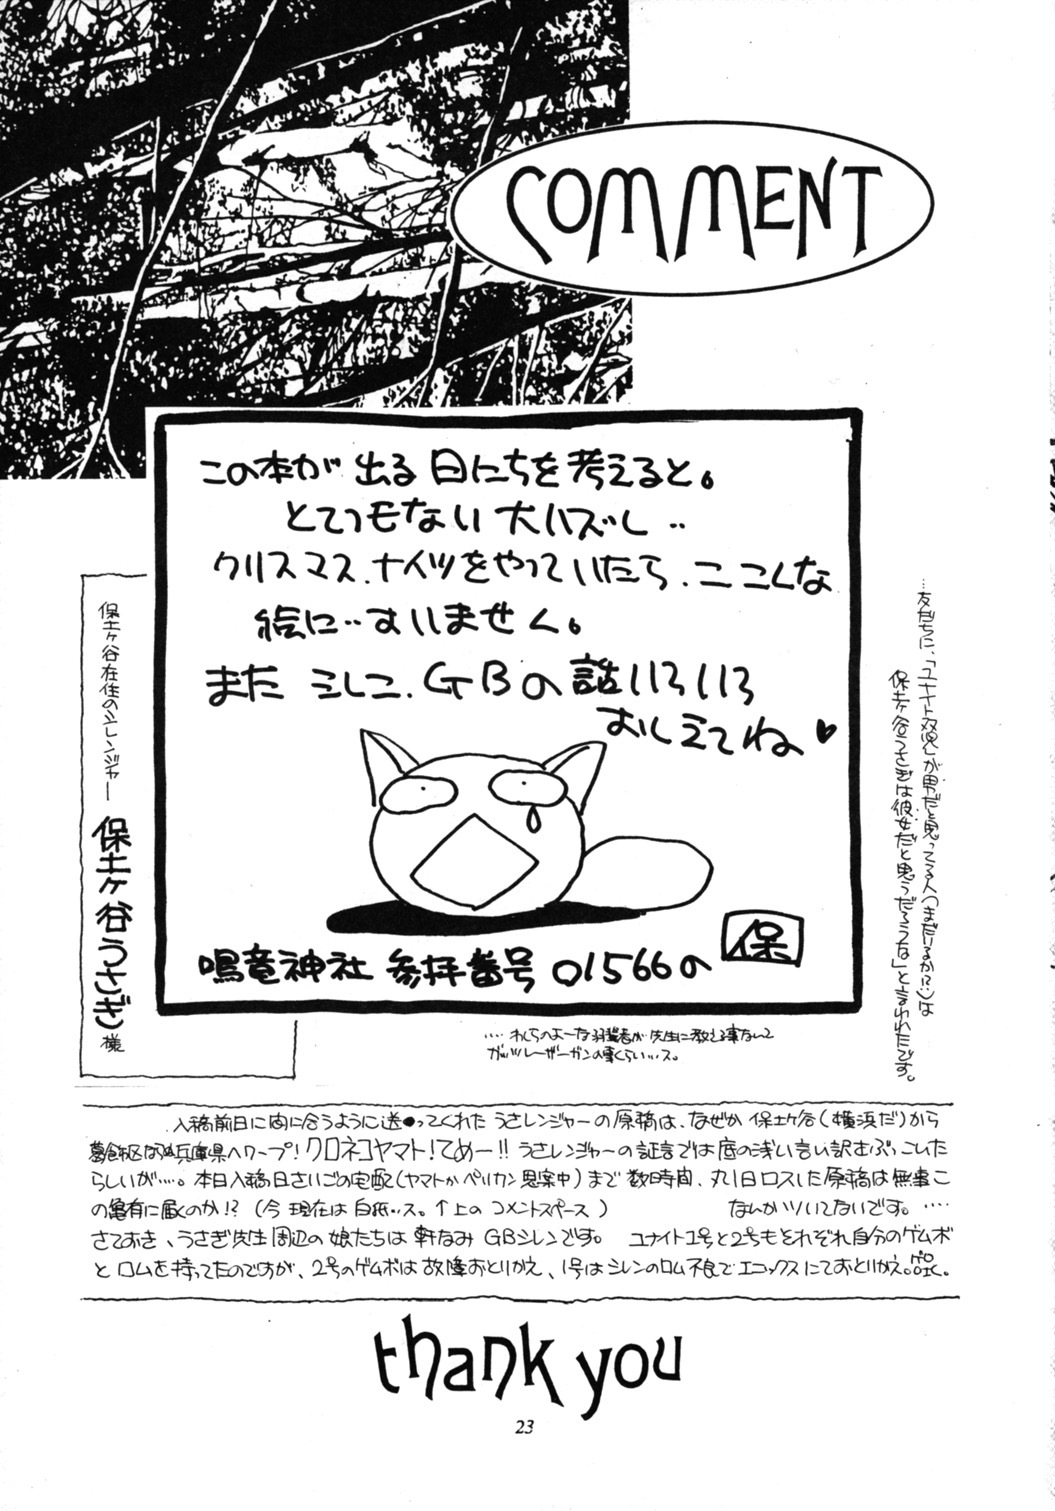 COMMENT
この本が出る日にちを考えると。
とてつもない大ハズレ‥
クリスマスナイツをやっていたら、こ こんな
絵に‥すいません。
また シレン、GBの話いろいろ
おしえてね♥
鳴竜神社 参拝番号 01566の 保
保土ヶ谷在住のシレンジャー
保土ヶ谷うさぎ様
…友だちに、「ユナイト双児」が男だと思ってる人(まだいるか!?:)は
保土ヶ谷うさぎは彼女だと思うだろうな」と言われたです。
‥‥わしらのよーな弱輩者が先生に教える事なんて
ガッツレーザーガンの事くらい‥ス。
入稿前日に間に合うように送ってくれた うさレンジャーの原稿は、なぜか 保土ヶ谷(横浜だ)から
葛飾区ならぬ兵庫県へワープ!クロネコヤマト!てめー!!うさレンジャーの証言では底の浅い言い訳さぶっこいた
らしいが‥‥。本日入稿日さいごの宅配(ヤマトかペリカン思案中)まで数時間、丸1日ロスした原稿は無事こ
の亀有に届くのか!?(今現在は白紙‥ス。↑上のコメントスペース) なんかツいてないです。‥‥
さておき、うさぎ先生周辺の娘たちは軒なみ GBシレンです。 ユナイト1号と2号もそれぞれ自分のゲムボ
とロムを持ってたのですが、2号のゲムボは故障おとりかえ、1号はシレンのロム不良でエニックスにておとりかえ。
thank you
23